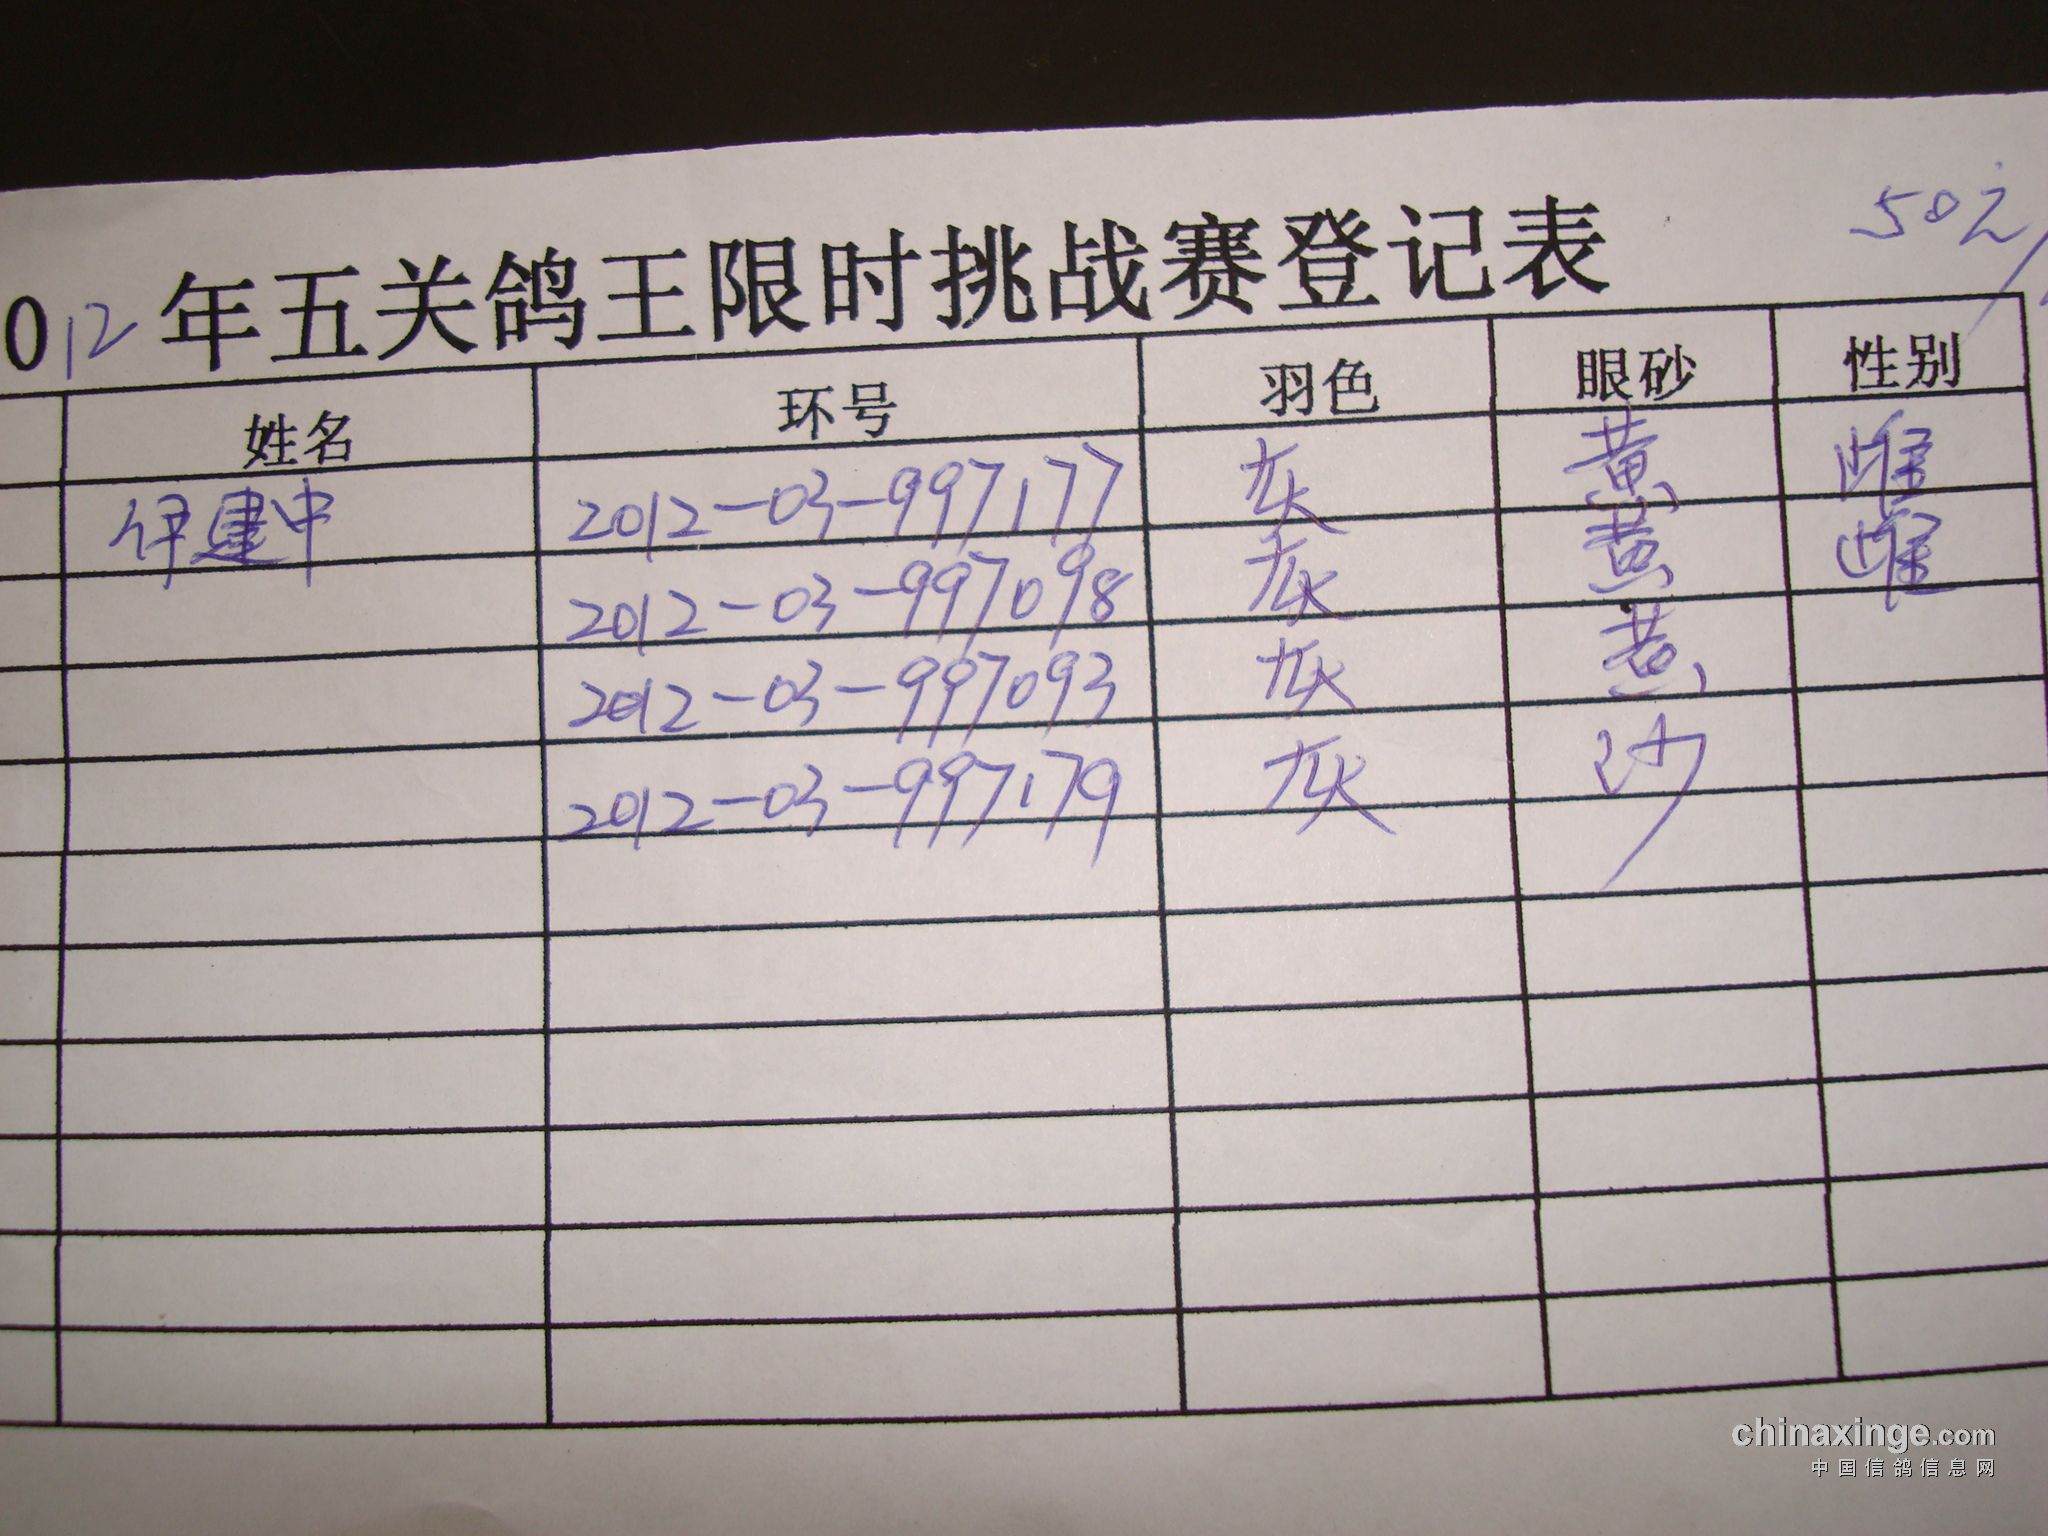 50元
012年五关鸽王限时挑战赛登记表
姓名 环号 羽色 眼砂 性别
伊建中 2012-03-997177 灰 黄 雌
2012-03-997098 灰 黄 雌
2012-03-997093 灰 黄
2012-03-997179 灰 沙
chinaxinge.com
中国信鸽信息网